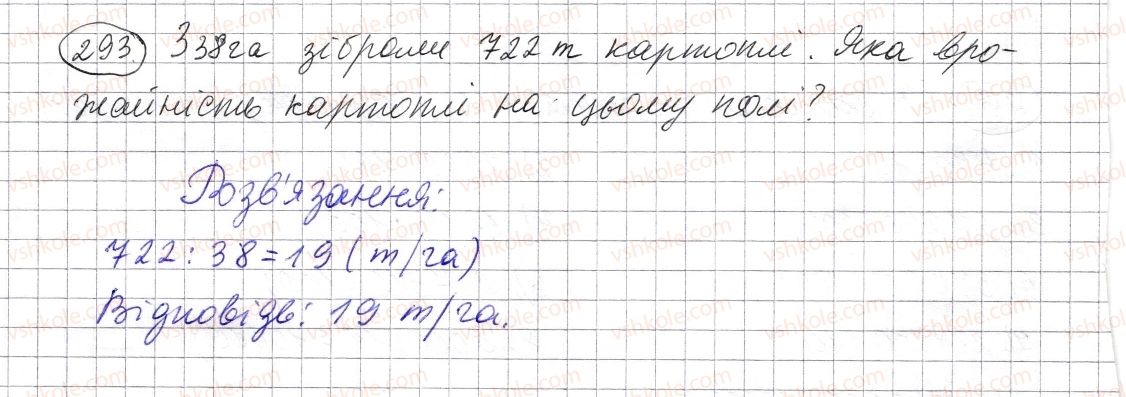 293. З 38га зібрали 722 т картоплі. Яка вро-
жайність картоплі на цьому полі?
Розв'язання:
722 : 38 = 19 (т/га)
Відповідь: 19 т/га.